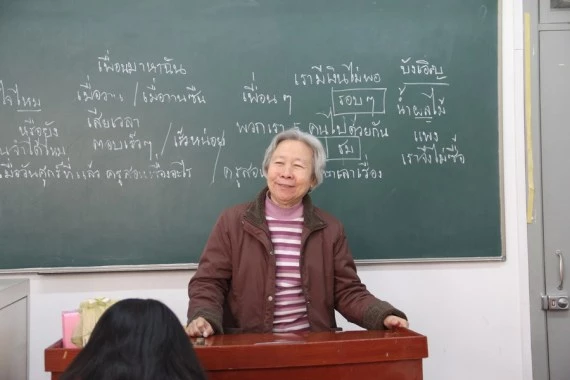 เพื่อนมาหาฉัน
เมื่อวาน / เมื่อวานซืน
เสียเวลา
ตอบเร็วๆ / เร็วหน่อย
ไหม
หรือยัง
จำได้ไหม
เมื่อวันศุกร์ที่แล้ว ครูสอนเรื่องอะไร / ครูสอน
เรามีเงินไม่พอ
เพื่อน ๆ รอบๆ
พวกเรา 5 คนไปด้วยกัน
ชม
เรื่อง
บังเอิญ
น้ำผลไม้
แพง
เราจึงไม่ซื้อ